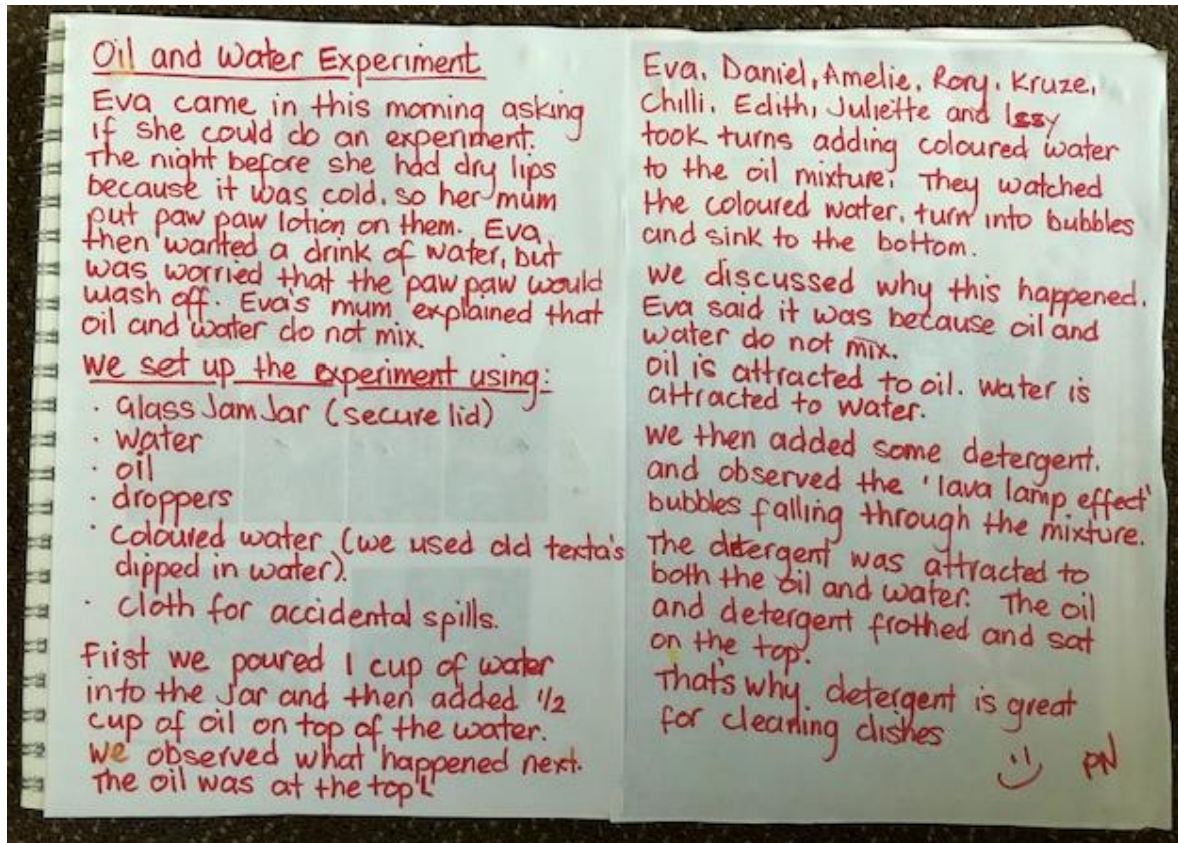 Oil and Water Experiment
Eva came in this morning asking
if she could do an experiment.
The night before she had dry lips
because it was cold. so her mum
put paw paw lotion on them. Eva
then wanted a drink of water, but
was worried that the paw paw would
wash off. Eva's mum explained that
oil and water do not mix.
We set up the experiment using:
· Glass Jam Jar (secure lid)
· water
· oil
· droppers
· Coloured water (we used old texta's
dipped in water).
· cloth for accidental spills.
First we poured 1 cup of water
into the Jar and then added 1/2
cup of oil on top of the water.
We observed what happened next.
The oil was at the top!
Eva, Daniel, Amelie, Rory, Kruze,
Chilli, Edith, Juliette and Issy
took turns adding coloured water
to the oil mixture. They watched
the coloured water. turn into bubbles
and sink to the bottom.
We discussed why this happened.
Eva said it was because oil and
water do not mix.
Oil is attracted to oil. Water is
attracted to water.
We then added some detergent.
and observed the 'lava lamp effect'
bubbles falling through the mixture.
The detergent was attracted to
both the oil and water. The oil
and detergent frothed and sat
on the top.
That's why. detergent is great
for cleaning dishes
PN